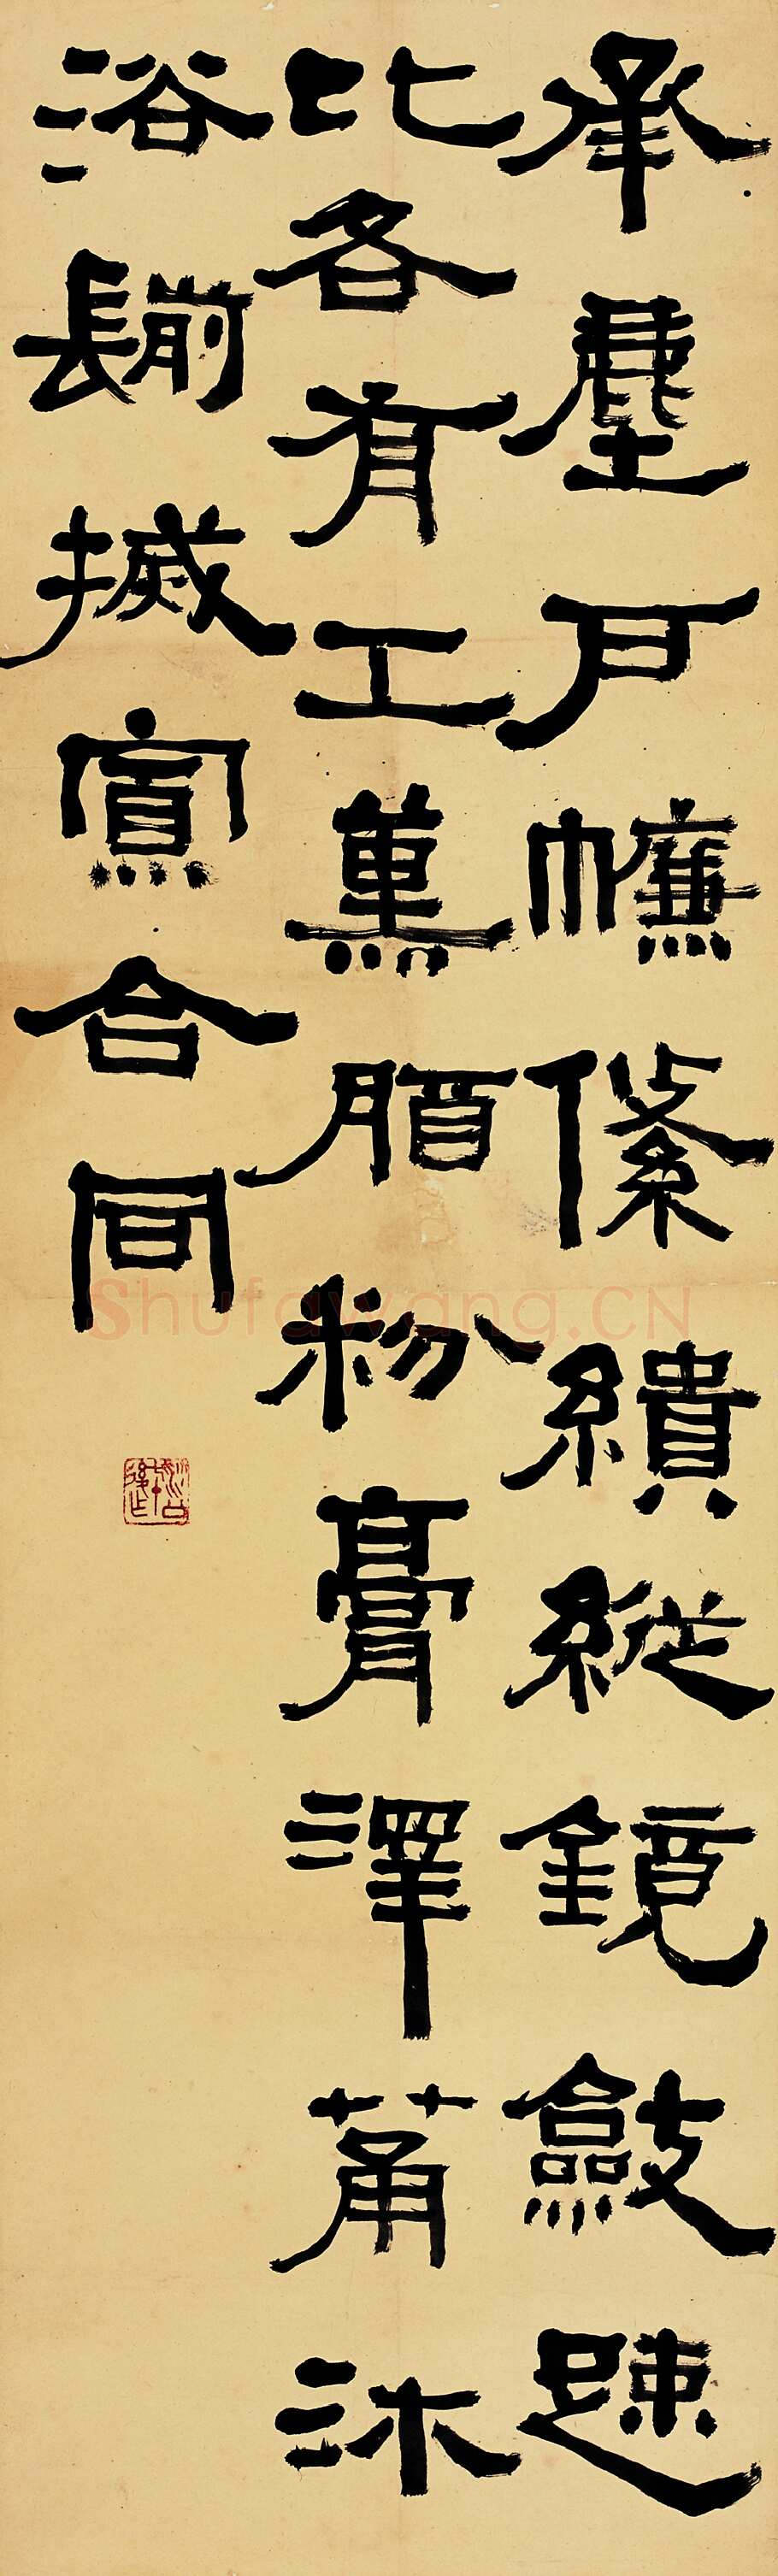 承塵戶㡘絛繢縱鏡斂踈
比各有工薰脂粉膏澤筩沐
浴鬋搣寡合同
Shufawang.CN